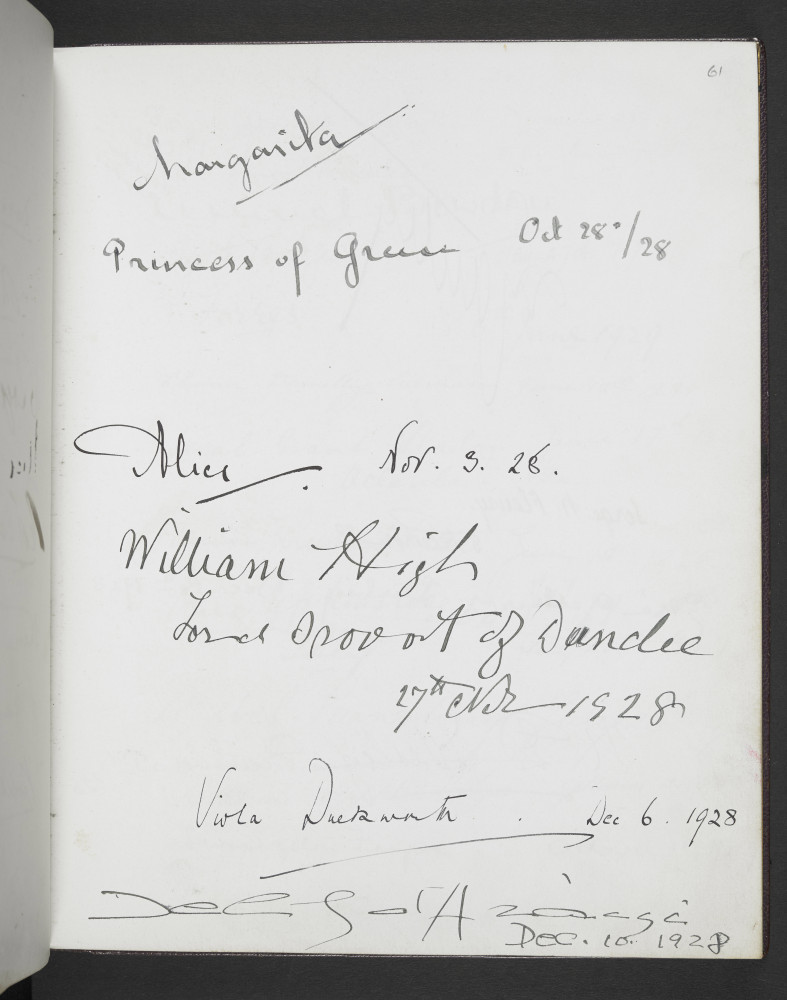 61
Margarita
Princess of Greece Oct 28º/28
Alice Nov. 3. 28.
William High
Lord Provost of Dundee
27th Nov 1928
Viola Duckworth. Dec 6. 1928
DEC. 10. 1928